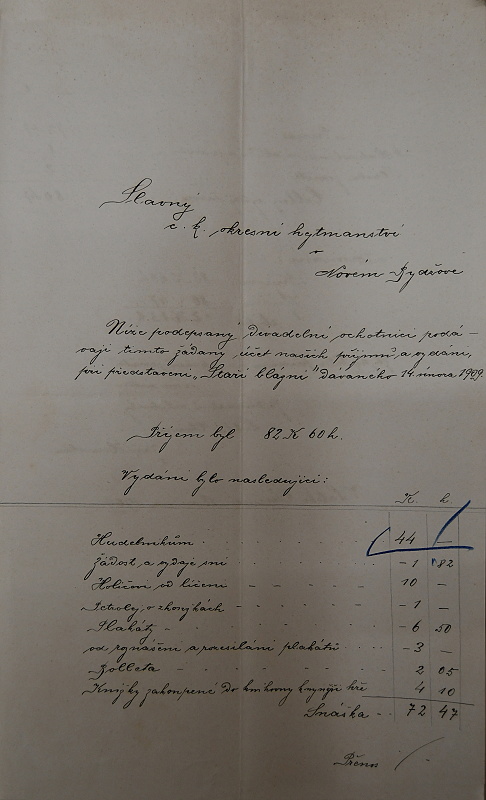 Slavný
c. k. okresní hejtmanství
v
Novém Bydžově
Níže podepsaný divadelní ochotníci podá-
vají temto žádaný účet našich příjmu, a vydání,
při představení „Staří blázni" dávaného 14. února 1909.
Příjem byl 82 K 60 h.
Vydání bylo následující:
K. h.
Hudebníkům 44 —
Žádost a výdaje s ní – 1 82
Holičovi od líčení – – – – 10 –
Petrolej, o zkouškách – 1 –
Plakáty – – 6 50
od roznášení a rozesílání plakátů – 3 –
Bolleta – – – – 2 05
Knížky zakoupené do knihovny k nynější hře 4 10
Snáška – 72 47
Přenos